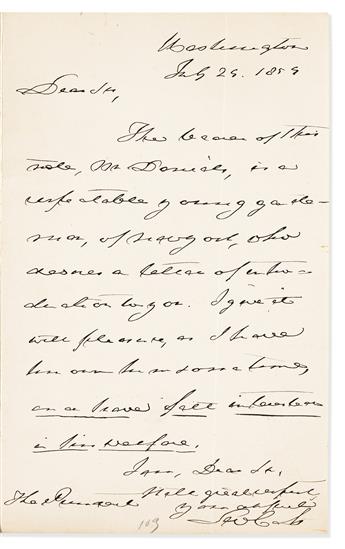 Washington
July 29. 1859
Dear Sir,
The bearer of this
note, Mr Daniels, is a
respectable young gentle-
man, of New York, who
desires a letter of intro-
duction to you. I give it
with pleasure, as I have
known him sometime,
and have felt interested
in his welfare.
I am, Dear Sir,
With great respect
your
The President
Lew Cass
103